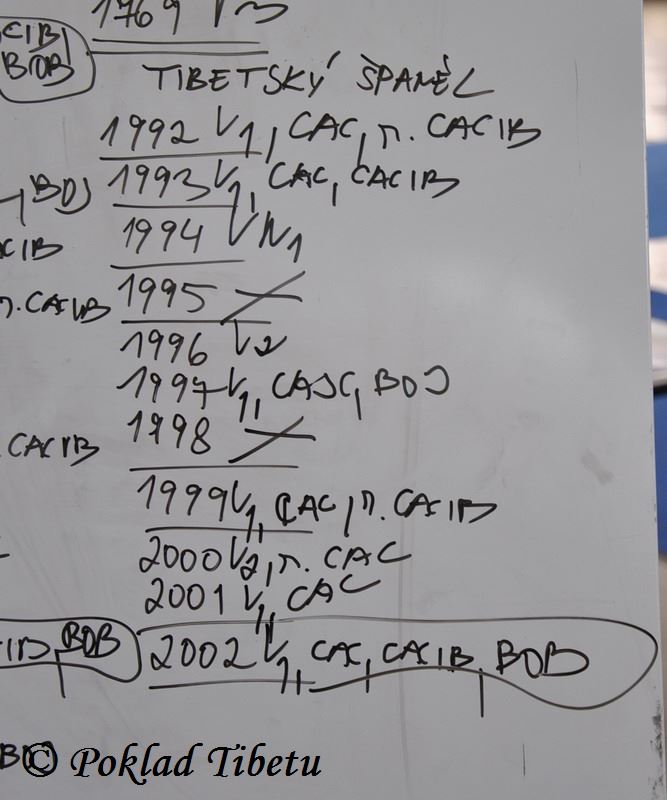 1769 V3
CIB
BOB
TIBETSKÝ ŠPANĚL
1992 V1, CAC, r. CACIB
1993 V1, CAC, CACIB
BOJ
1994 VN1
CIB
1995 —
r. CACIB
1996 V2
1997 V1, CAJC, BOJ
1998 —
CACIB
1999 V1, CAC, r. CACIB
2000 V2, r. CAC
2001 V1, CAC
CIB, BOB
2002 V1, CAC, CACIB, BOB
© Poklad Tibetu